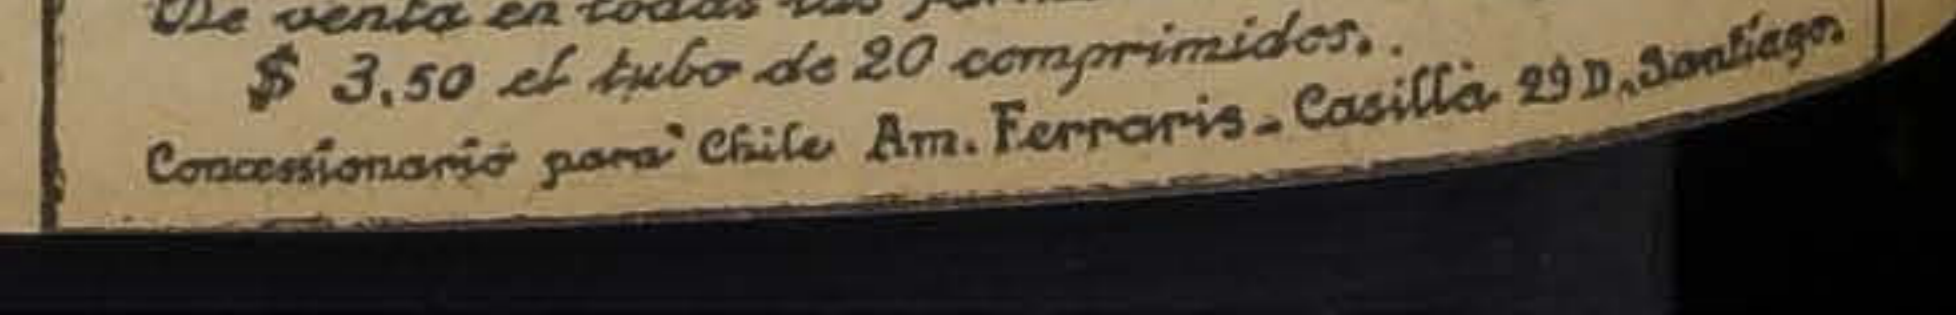 De venta en todas las
$ 3,50 el tubo de 20 comprimidos.
Concessionario para Chile Am. Ferraris - Casilla 29 D, Santiago.